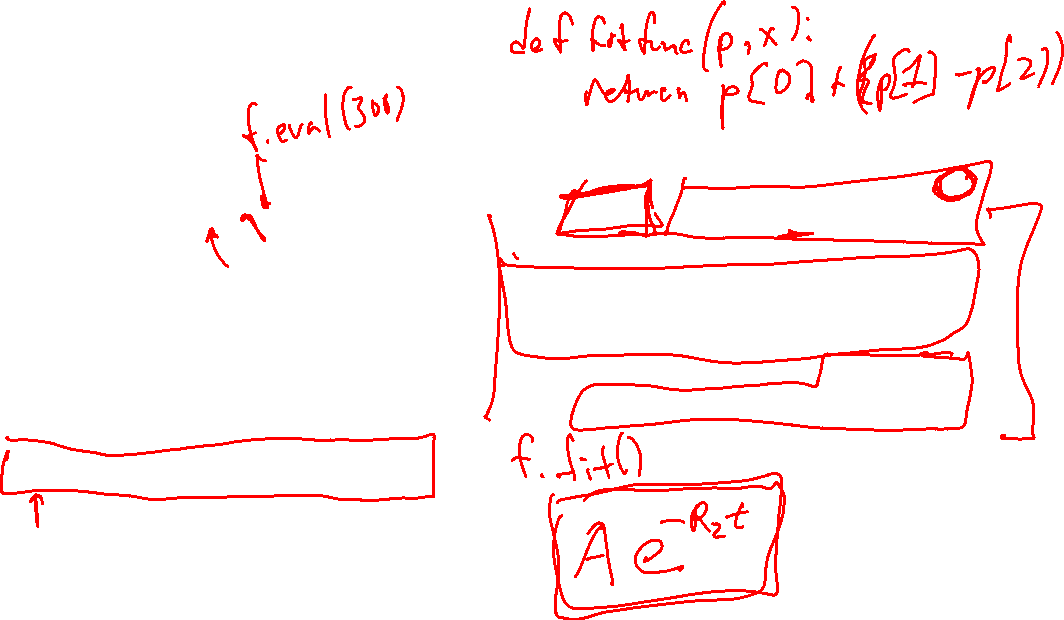 def fitfunc(p,x):
return p[0] + (p[1] - p[2])
f.eval(300)
f.fit()
A e^-R₂t